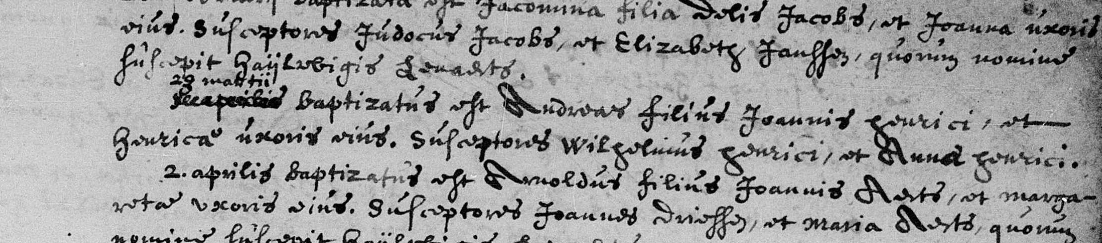 baptizata est Jacomina filia Delis Jacobs, et Joanna uxoris
eius. Susceptores Judocus Jacobs, et Elizabeth Janssen, quorum nomine
suscepit Haijlwigis Lenaerts.
29 martii
baptizatus est Andreas filius Joannis Henrici, et
Henricae uxoris eius. Susceptores Wilhelmus Henrici, et Anna Henrici.
2. aprilis baptizatus est Arnoldus filius Joannis Aerts, et Marga-
retae uxoris eius. Susceptores Joannes Driessen, et Maria Aerts, quorum
nomine suscepit